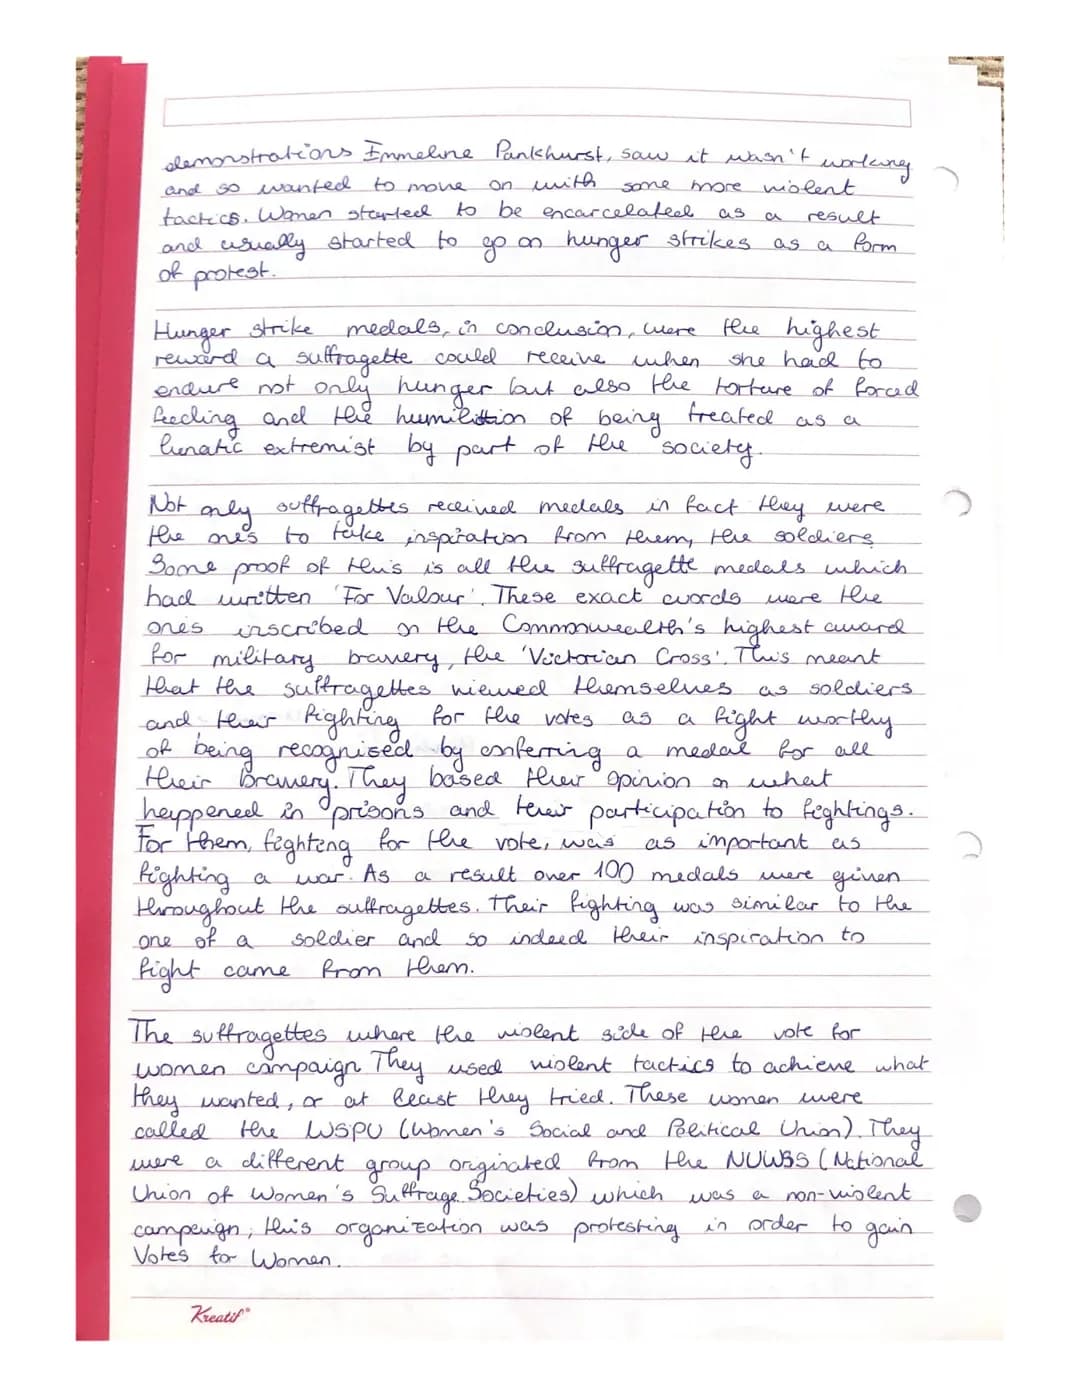 demonstrations Emmeline Pankhurst, saw it wasn't working
and so wanted to move on with some more violent
tactics. Women started to be encarcelated as a result
and usually started to go on hunger strikes as a form
of protest.
Hunger strike medals, in conclusion, were the highest
reward a suffragette could receive when she had to
endure not only hunger but also the torture of forced
feeding and the humiliation of being treated as a
lunatic extremist by part of the society.
Not only suffragettes received medals in fact they were
the ones to take inspiration from them, the soldiers
Some proof of this is all the suffragette medals which
had written 'For Valour'. These exact words were the
ones inscribed on the Commonwealth's highest award
for military bravery, the 'Victorian Cross'. This meant
that the suffragettes viewed themselves as soldiers
and their fighting for the votes as a fight worthy
of being recognised by conferring a medal for all
their bravery. They based their opinion on what
happened in prisons and their participation to fightings.
For them, fighting for the vote, was as important as
fighting a war. As a result over 100 medals were given
throughout the suffragettes. Their fighting was similar to the
one of a soldier and so indeed their inspiration to
fight came from them.
The suffragettes where the violent side of the vote for
women campaign. They used violent tactics to achieve what
they wanted, or at least they tried. These women were
called the WSPU (Women's Social and Political Union). They
were a different group originated from the NUWSS (National
Union of Women's Suffrage Societies) which was a non-violent
campaign, this organization was protesting in order to gain
Votes for Women.
Kreatif